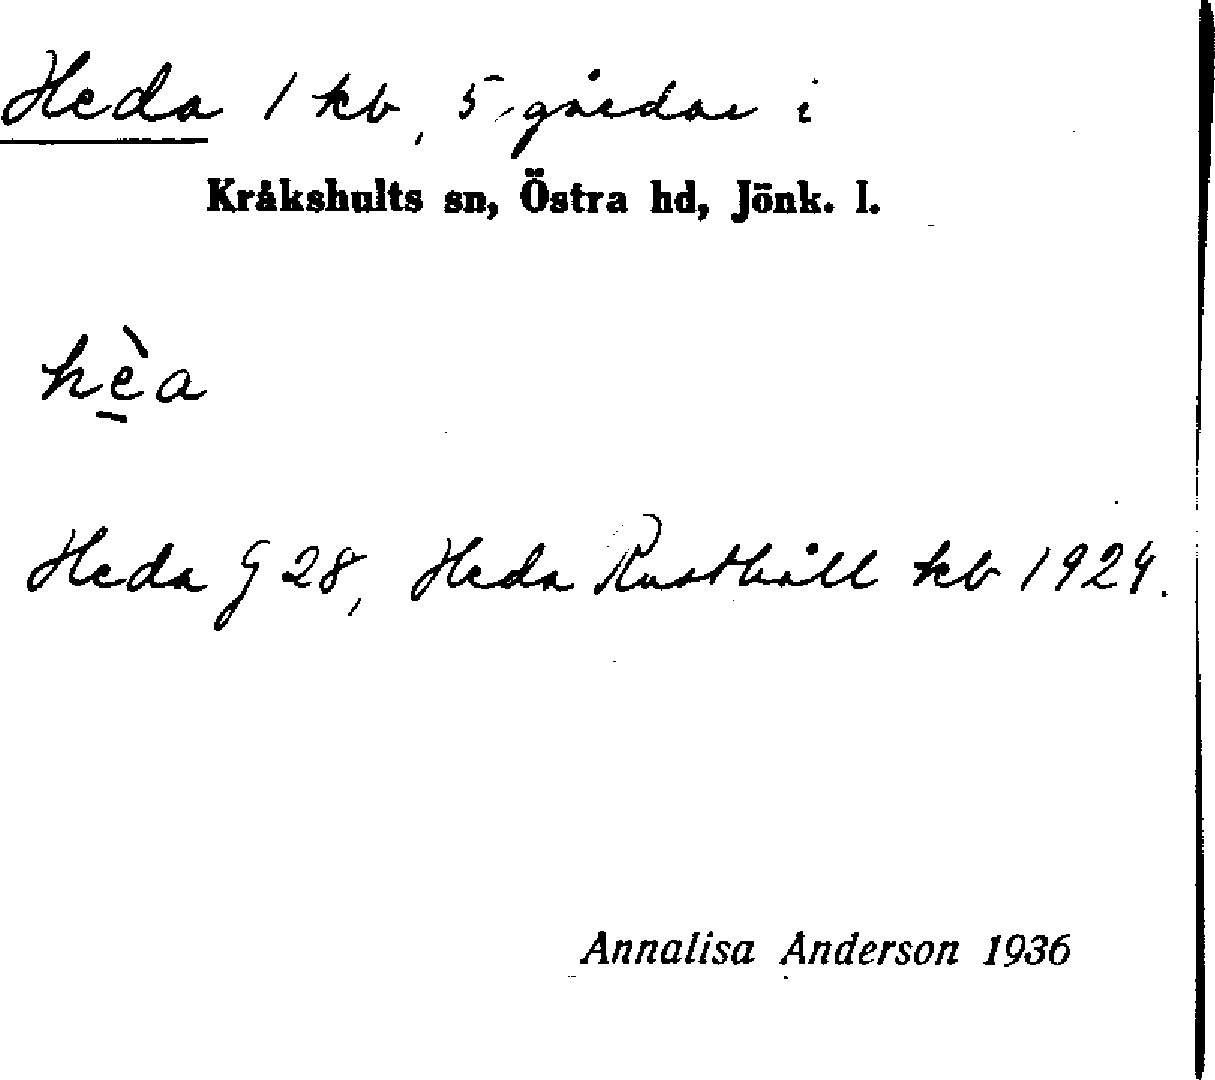 Heda 1 kb, 5 gårdar i
Kråkshults sn, Östra hd, Jönk. l.
hè̠a
Heda G 28, Heda Rusthåll kb 1924.
Annalisa Anderson 1936